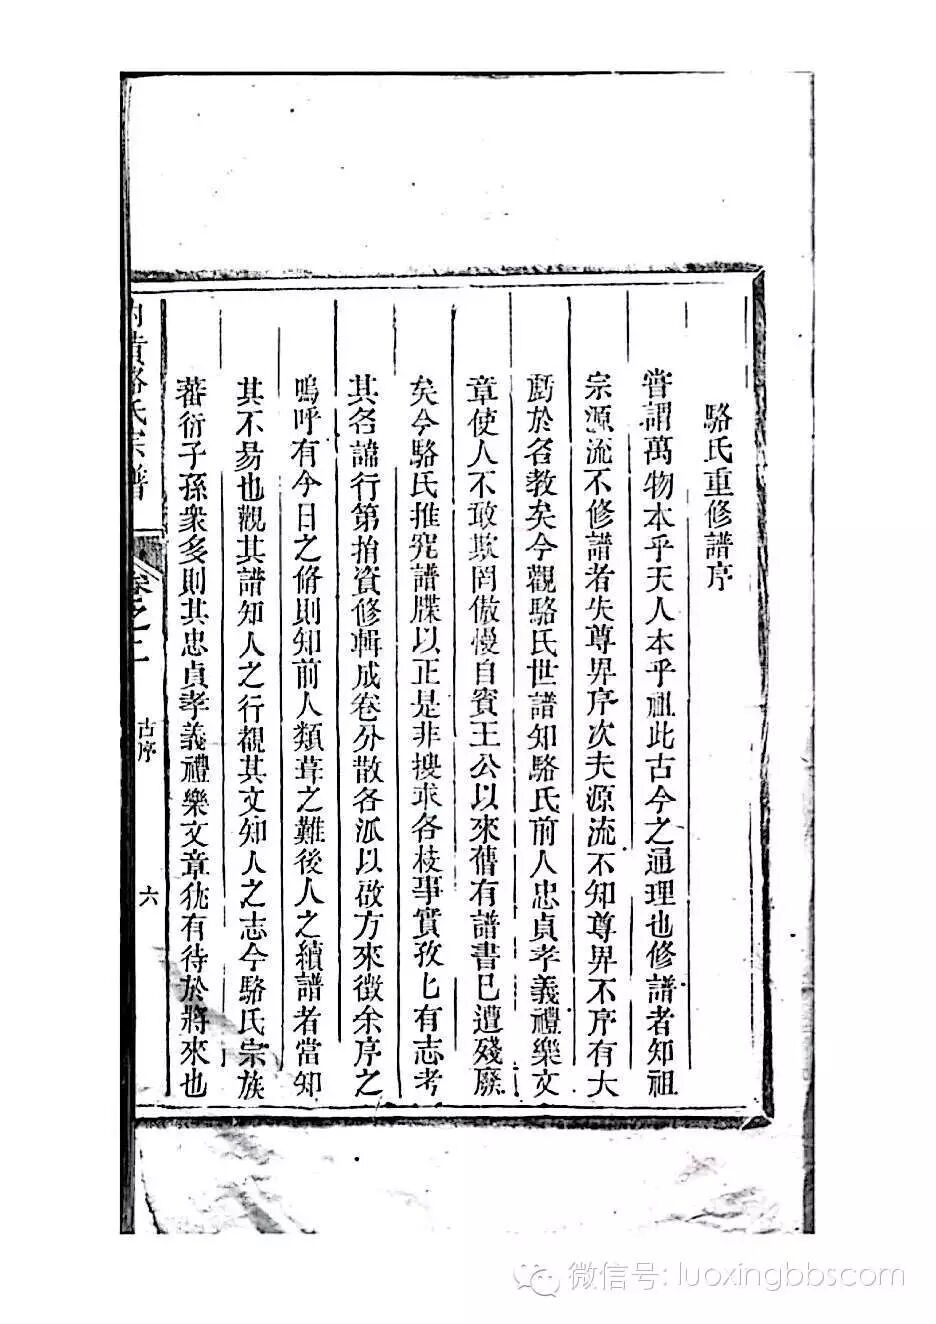 駱氏重修譜序
嘗謂萬物本乎天人本乎祖此古今之通理也修譜者知祖
宗源流不修譜者失尊畀序次夫源流不知尊畀不序有大
於名教矣今觀駱氏世譜知駱氏前人忠貞孝義禮樂文
章使人不敢欺罔傲慢自賓王公以來舊有譜書已遭殘廢
矣今駱氏推究譜牒以正是非搜求各枝事實孜匕有志考
其名諱行第捐資修輯成卷分散各派以啟方來徵余序之
嗚呼有今日之脩則知前人類葺之難後人之續譜者當知
其不易也觀其譜知人之行觀其文知人之志今駱氏宗族
蕃衍子孫衆多則其忠貞孝義禮樂文章猶有待於將來也
黄駱氏宗譜
卷之二
古序
六
微信号: luoxingbbscom